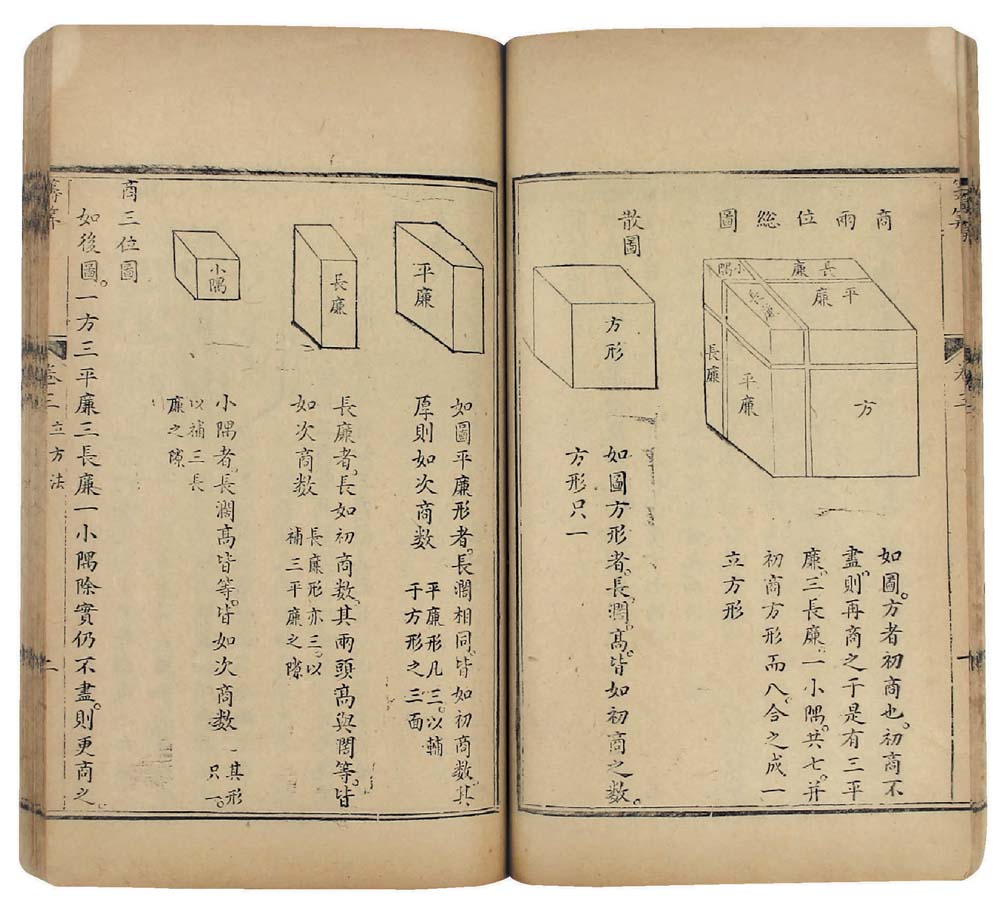 商兩位總圖
小隅
長廉
平廉
長廉
長廉
平廉
方
如圖。方者初商也。初商不
盡則再商之于是有三平
廉三長廉一小隅。共七。并
初商方形而八。合之成一
立方形
散圖
方形
如圖方形者。長濶。高。皆如初商之數。
方形只一
平廉
如圖平廉形者。長濶相同。皆如初商數。其
厚則如次商數
平廉形凡三。以輔
于方形之三面
長廉
長廉者。長如初商數。其兩頭高與闊等。皆
如次商數
長廉形亦三。以
補三平廉之隙
小隅
小隅者。長濶高皆等。皆如次商數
其形
只一。
以補三長
廉之隙
商三位圖
如後圖。一方三平廉三長廉一小隅除實仍不盡。則更商之
卷三
立方法